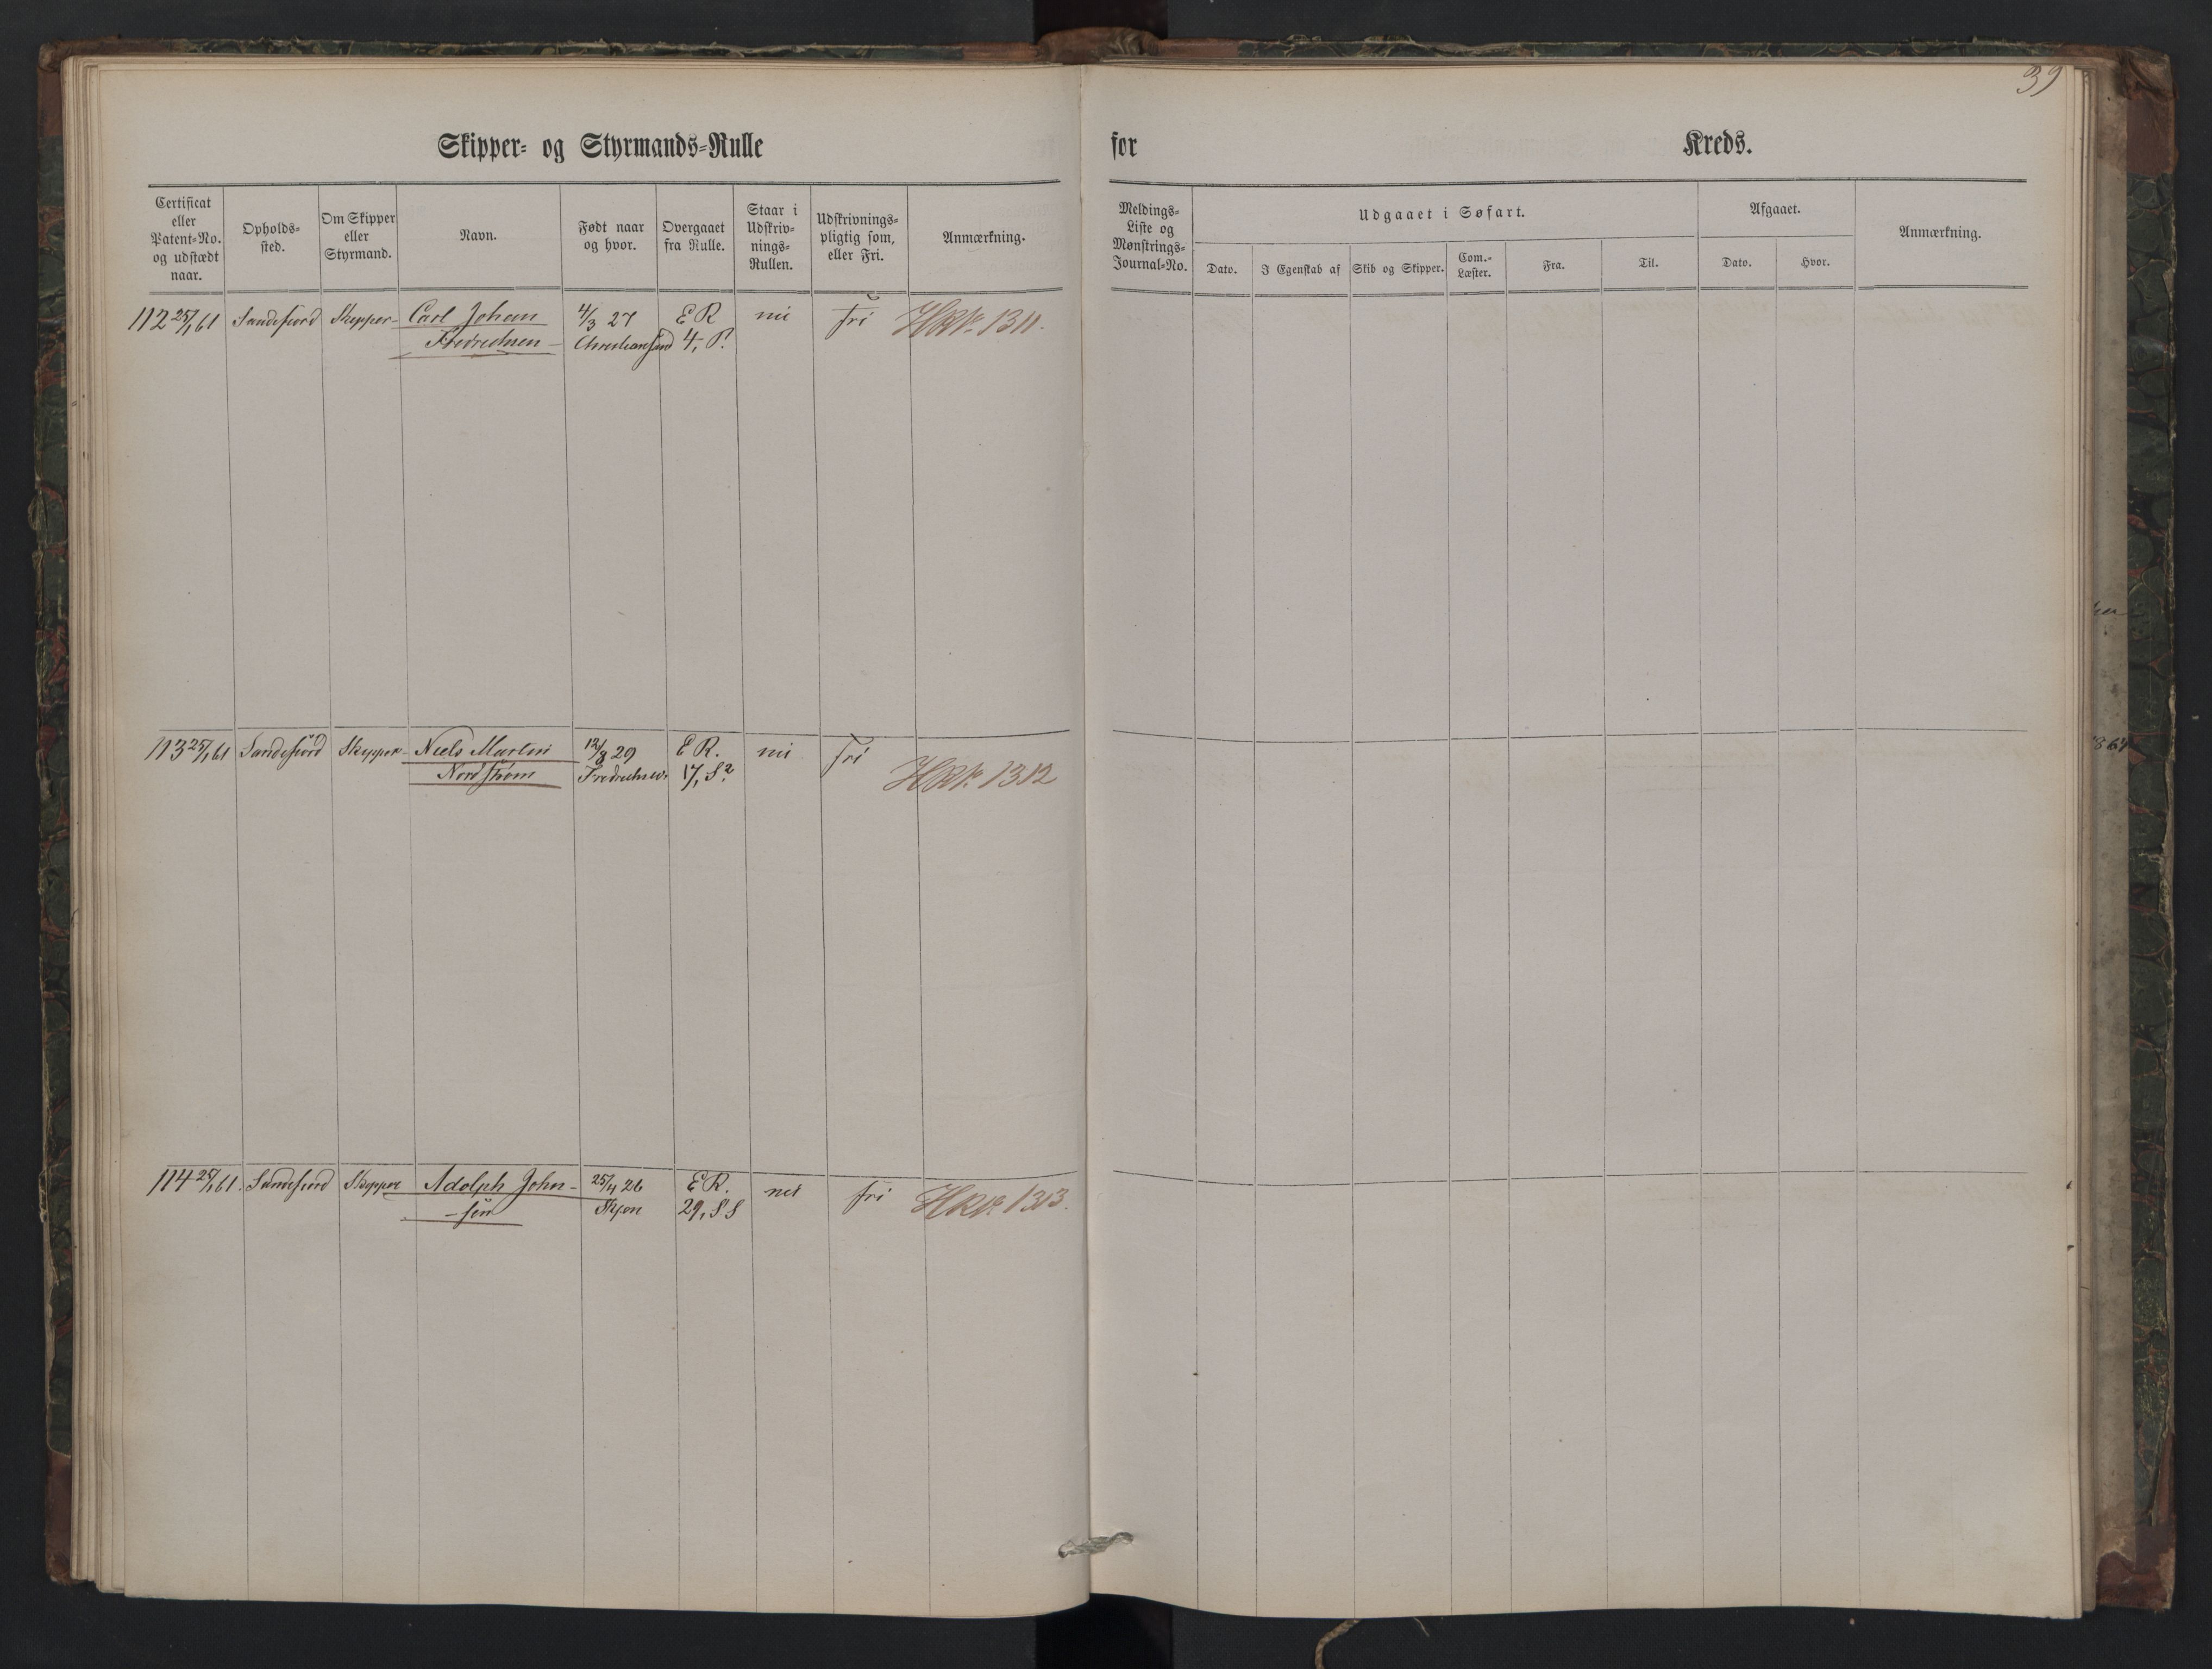 39
Skipper- og Styrmands-Rulle for Kreds.
Certificat eller Patent-No. og udstædt naar.
Opholds-sted.
Om Skipper eller Styrmand.
Navn.
Født naar og hvor.
Overgaaet fra Rulle.
Staar i Udskriv-nings-Rullen.
Udskrivnings-pligtig som, eller Fri.
Anmærkning.
Meldings-Liste og Mønstrings-Journal-No.
Udgaaet i Søfart.
Dato.
I Egenskab af
Skib og Skipper.
Com.-Læster.
Fra.
Til.
Afgaaet.
Dato.
Hvor.
Anmærkning.
112 25/1 61 Sandefiord Skipper Carl Johan 4/3 27 E R nei fri 1311.
Fredrichsen Christiansand 4, P.
113 25/1 61 Sandefiord Skipper Niels Martin 12/8 29 E R. nei fri
Nordstrøm 17, S2 1312
114 25/1 61. Sandefiord Skipper Adolph John- 25/4 26 E R. nei fri 1313.
-sen 29, S S